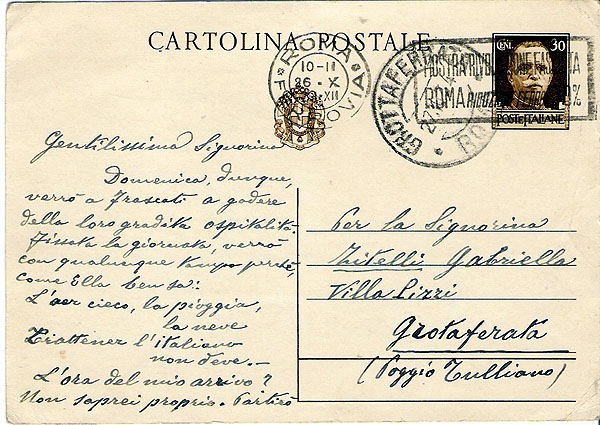 CARTOLINA POSTALE
CENT. 30
POSTE ITALIANE
ROMA FERROVIA
10-11
26 · X
XII
GROTTAFERRATA
ROMA
MOSTRA RIVOLUZIONE FASCISTA
ROMA RIDUZ. FERROV. %
Gentilissima Signorina
Domenica, dunque,
verrò a Frascati a godere
della loro gradita ospitalità.
Fissata la giornata, verrò
con qualunque tempo perchè,
come Ella ben sa:
L'aer cieco, la pioggia,
la neve
Trattener l'italiano
non deve.—
L'ora del mio arrivo?
Non saprei proprio. Partirò
Per la Signorina
Zitelli Gabriella
Villa Lizzi
Grotaferata
(Poggio Tulliano)